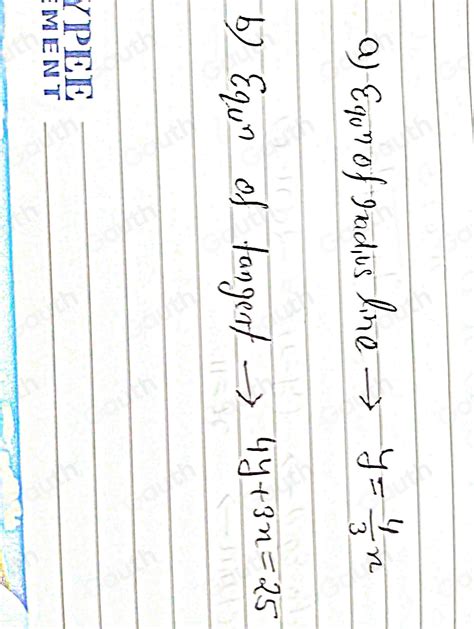 a) Equⁿ of radius line → y = 4/3 x
b) Equⁿ of tangent → 4y+3x=25
YPEE
EMENT
Gauth